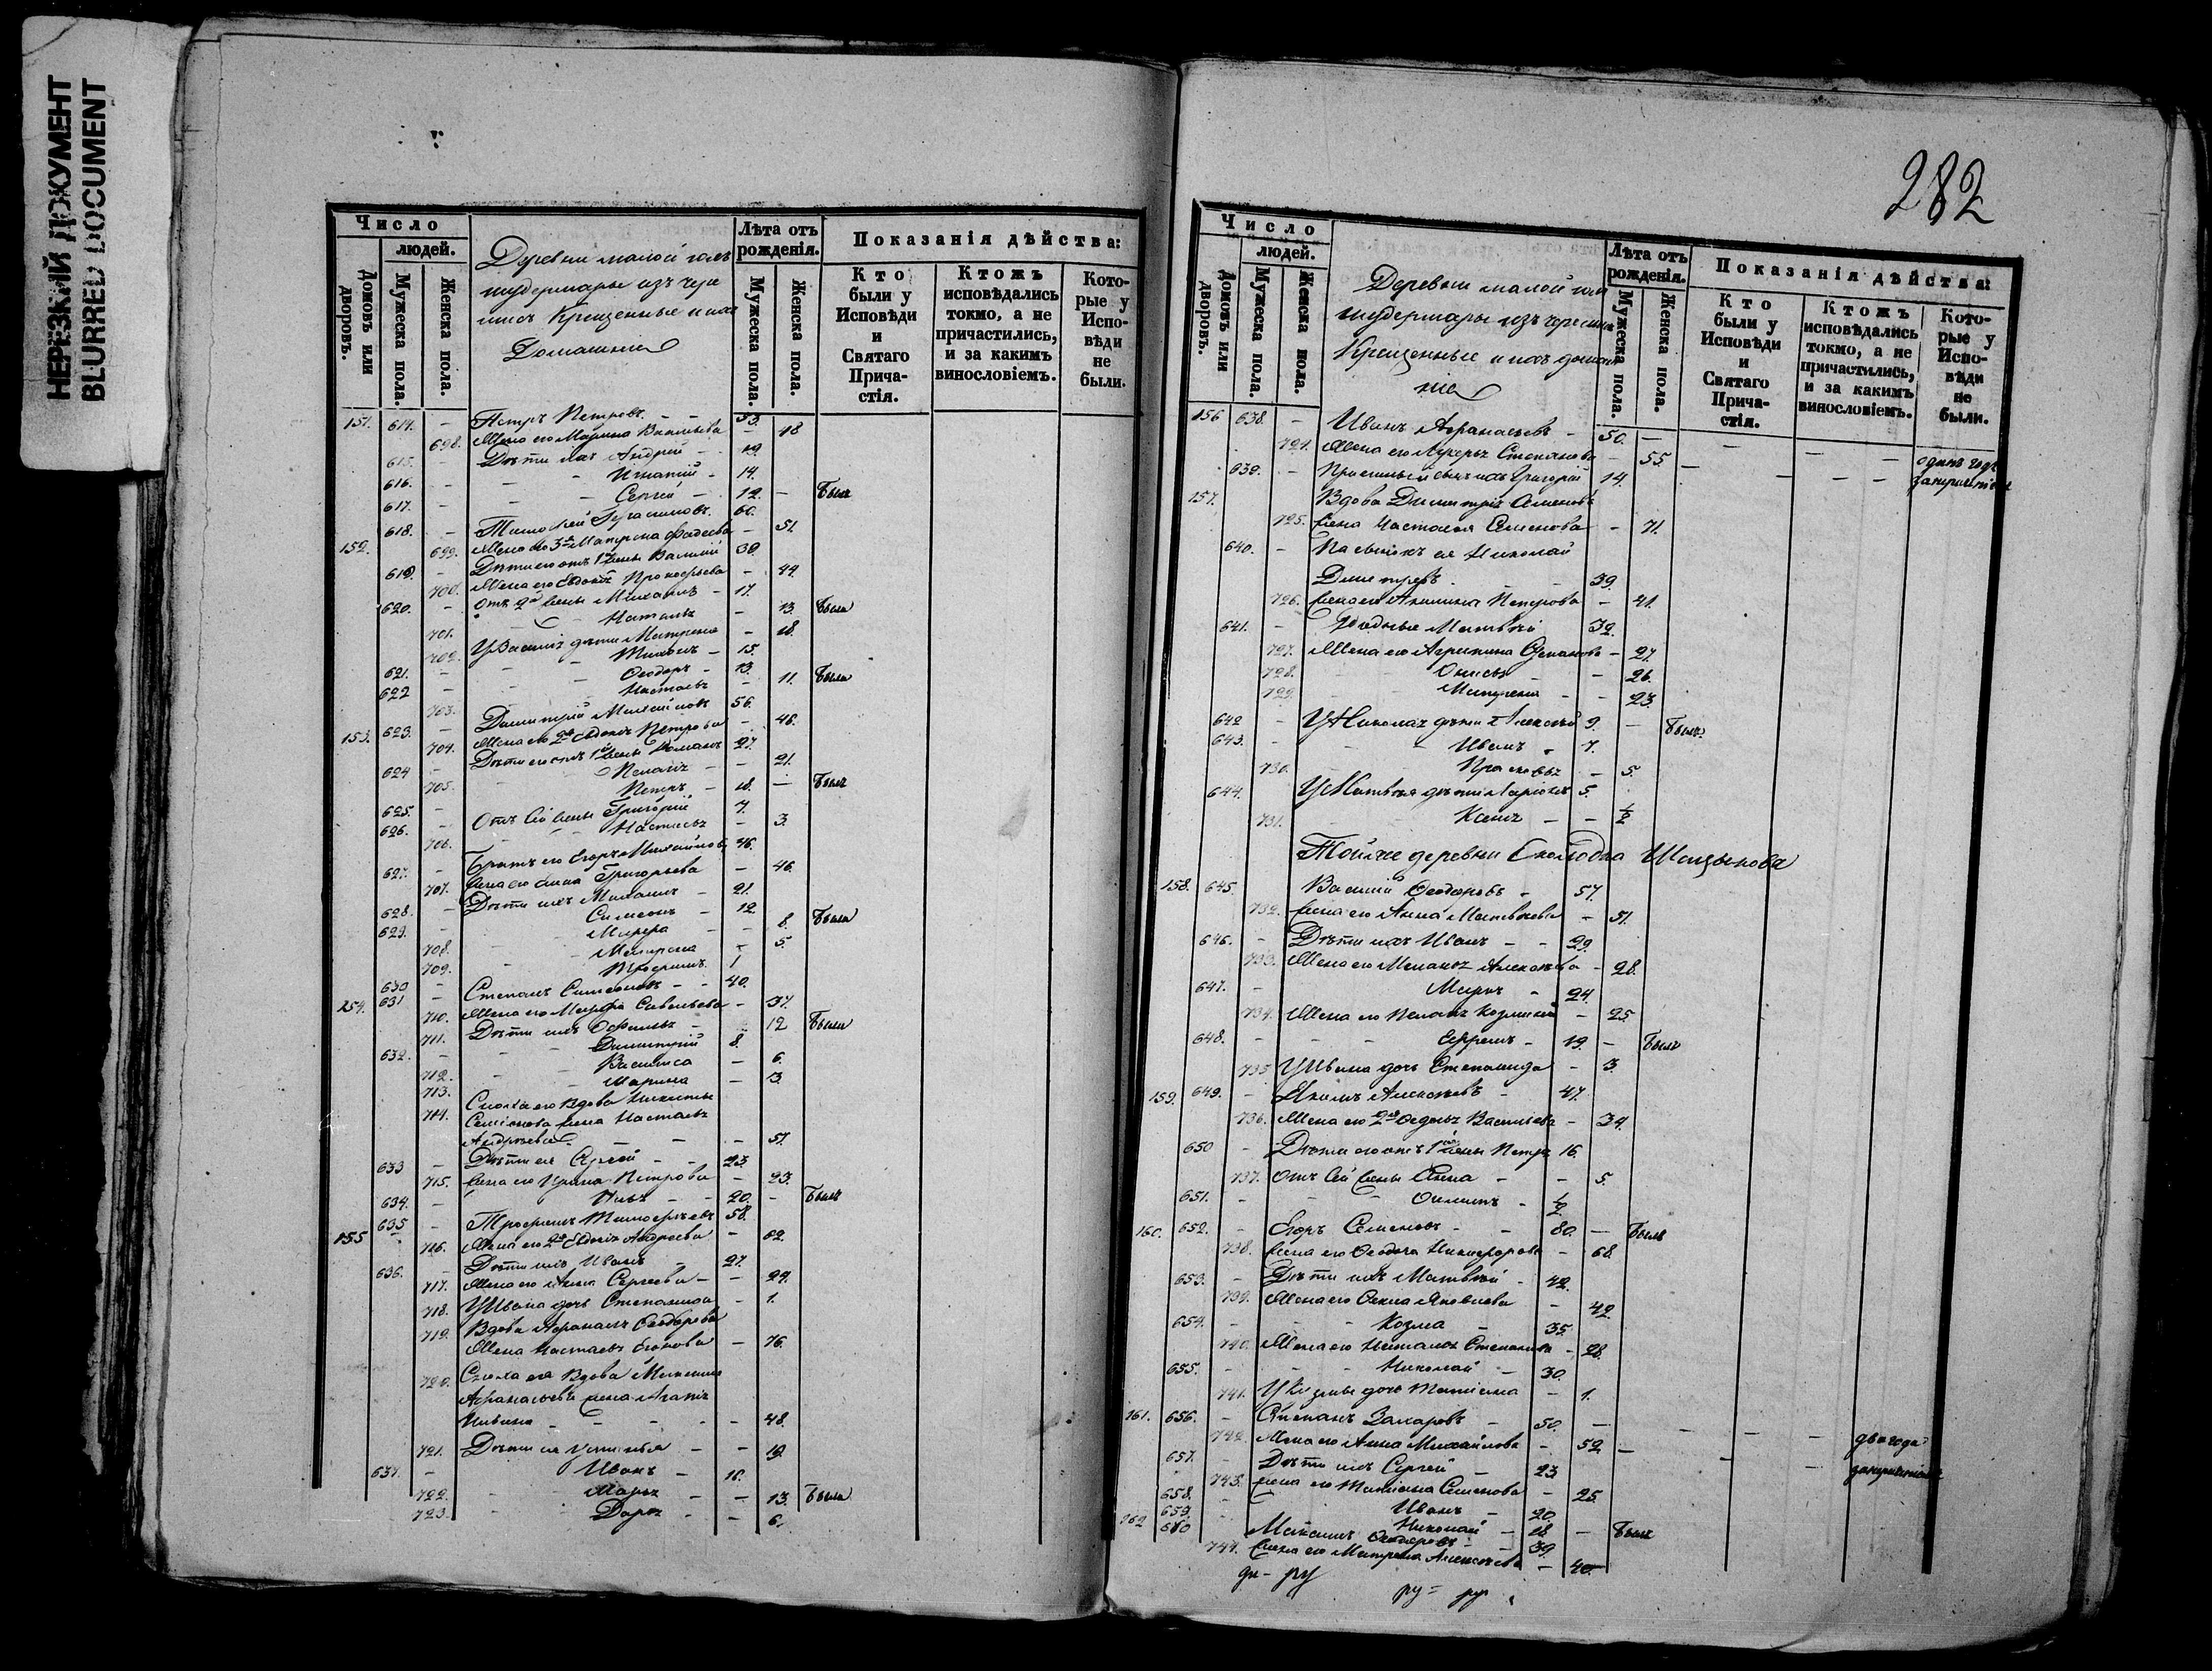 НЕРЕЗКИЙ ДОКУМЕНТ
BLURRED DOCUMENT
Число
людей.
Домовъ или дворовъ.
Мужеска пола.
Женска пола.
Деревни малой
Крещенные и ихъ
Домашніе
Лѣта отъ рожденія.
Мужеска пола.
Женска пола.
Показанія дѣйства:
Кто были у Исповѣди и Святаго Причастія.
Ктожъ исповѣдались токмо, а не причастились, и за какимъ винословіемъ.
Которые у Исповѣди не были.
151. 614. — Петръ Петровъ 53.
698. Жена его Марина Васильева — 18
615. — Дѣти ихъ Андрей — 19
616. — Игнатій — 14.
617. — Сергей — 12. — Были
152. 618. — Тимофей Герасимовъ. 60.
699. Жена его 3я Матрена Фадеева — 51.
619. — Дѣти его отъ 1й жены Василий 39.
700. Жена его Евдокія Прокофьева — 44.
620. — Отъ 2й жены Михаилъ — 17.
701. Наталья — 13. Были
702. У Василія дѣти Матрена — 18.
621. — Тихонъ — 15.
622 — Ѳеодоръ — 13.
703. Настасья — 11. Были
153. 623. — Димитрій Михайловъ 56.
704. Жена его 2я Евдокія Петрова — 46.
624 — Дѣти его отъ 1й жены Романъ 27.
705. Пелагія — — 21.
625. — Петръ — 18. — Были
626. — Отъ сей жены Григорій 7.
706. Настасья — 3.
627. — Братъ его Егоръ Михайловъ 46.
707. жена его Анна Григорьева — 46.
628. — Дѣти ихъ Михаилъ — 21.
629. — Симеонъ — 12
708. Марфа — — 8. Были
709. Матрена — 5
630 — Трофимъ 1
154. 631 — Степанъ Симеоновъ — — 40.
710. Жена его Марфа Савельева — 37.
711. Дѣти ихъ — 12 Были
632. — Димитрій 8.
712. Василиса — 6.
713. Марина — 3.
714. Сноха его Вдова Никиты
Семіонова жена Настасья
Андреева — — — 57.
633 — Дѣти ея Сергей — — 23.
715. жена его Ирина Петрова — 23.
634. — — — 20. — Были
155 635 — Трофимъ Тимофеевъ 58.
716. Жена его 2я Евдокія Андреева — 62.
636. — Дѣти ихъ Иванъ 27.
717. Жена его Анна Сергеева — — 29.
718. У Ивана дочь Степанида — 1.
719. Вдова Афанасія Ѳеодорова
Жена Настасья — 76.
720. Сноха ея Вдова
Афанасьева жена
— — — — 48.
721. Дѣти ея Устинья — — 19.
637. — Иванъ — 16.
722. Марья — — 13. Были
723. Дарья — — 6.
282
Число
людей.
Домовъ или дворовъ.
Мужеска пола.
Женска пола.
Деревни малой
Крещенные и ихъ домаш
ніе
Лѣта отъ рожденія.
Мужеска пола.
Женска пола.
Показанія дѣйства:
Кто были у Исповѣди и Святаго Причастія.
Ктожъ исповѣдались токмо, а не причастились, и за какимъ винословіемъ.
Которые у Исповѣди не были.
156 638. — Иванъ Афанасьевъ — 50. — — — —
724. Жена его Лукерья Степанова — 55. — — — одинъ годъ
639. — сынъ ихъ Григорій 14.
157. Вдова Димитрія Семенова
725. жена Настасья Семенова — 71.
640. — Пасынокъ ея Николай
Димитріевъ — — 39.
726. жена его Акилина Петрова — 41.
641. — Матвѣй 32.
727. Жена его Агрипина Степанова — 27.
728. Анисья — — 26.
729. Матрена — — 23.
642 — У Николая дѣти Алексѣй 9. — Были.
643. — Иванъ — 7.
730. Прасковья — 5.
644. У Матвѣя дѣти Ларіонъ 5.
731. Ксенія — — ½
Той же деревни
158. 645. Василій Ѳеодоровъ — 57.
732. жена его Анна Матвѣева — 51.
646. — Дѣти ихъ Иванъ — — 29.
733. Жена его Меланья Алексѣева — 28.
647. — Маркъ — 24.
734. Жена его Пелагія Козьмина — 25.
648. — — — Ефремъ — 19. — Были
735. У Ивана дочь Степанида — 3.
159. 649. — Якимъ Алексѣевъ — 47.
736. Жена его 2я Ѳедосья Васильева — 34.
650 — Дѣти его отъ 1й жены Петръ 16.
737. Отъ сей жены Анна — — 5.
651. — — — — ½.
160. 652. — Егоръ Семеновъ — — 80. — Были
738. жена его Ѳеодосья Никифорова — 68.
653. — Дѣти ихъ Матвѣй — 42.
739. Жена его Ѳекла Яковлева — 42
654. — — — Козма — 35.
740. Жена его Наталья Степанова — 28.
655. — — — Николай — 30.
741. У Козмы дочь Татіана — 1.
161. 656. — Степанъ Захаровъ — 50. — — — —
742. Жена его Анна Михайлова — 52 — — — два года
657. — Дѣти ихъ Сергей — 23
743. жена его Татіана Семенова — 25.
658. — Иванъ — 20.
659. — Николай — 18 — Были
162 660 Максимъ Ѳеодоровъ — 39.
744. Жена его Матрена Алексѣева — 40.